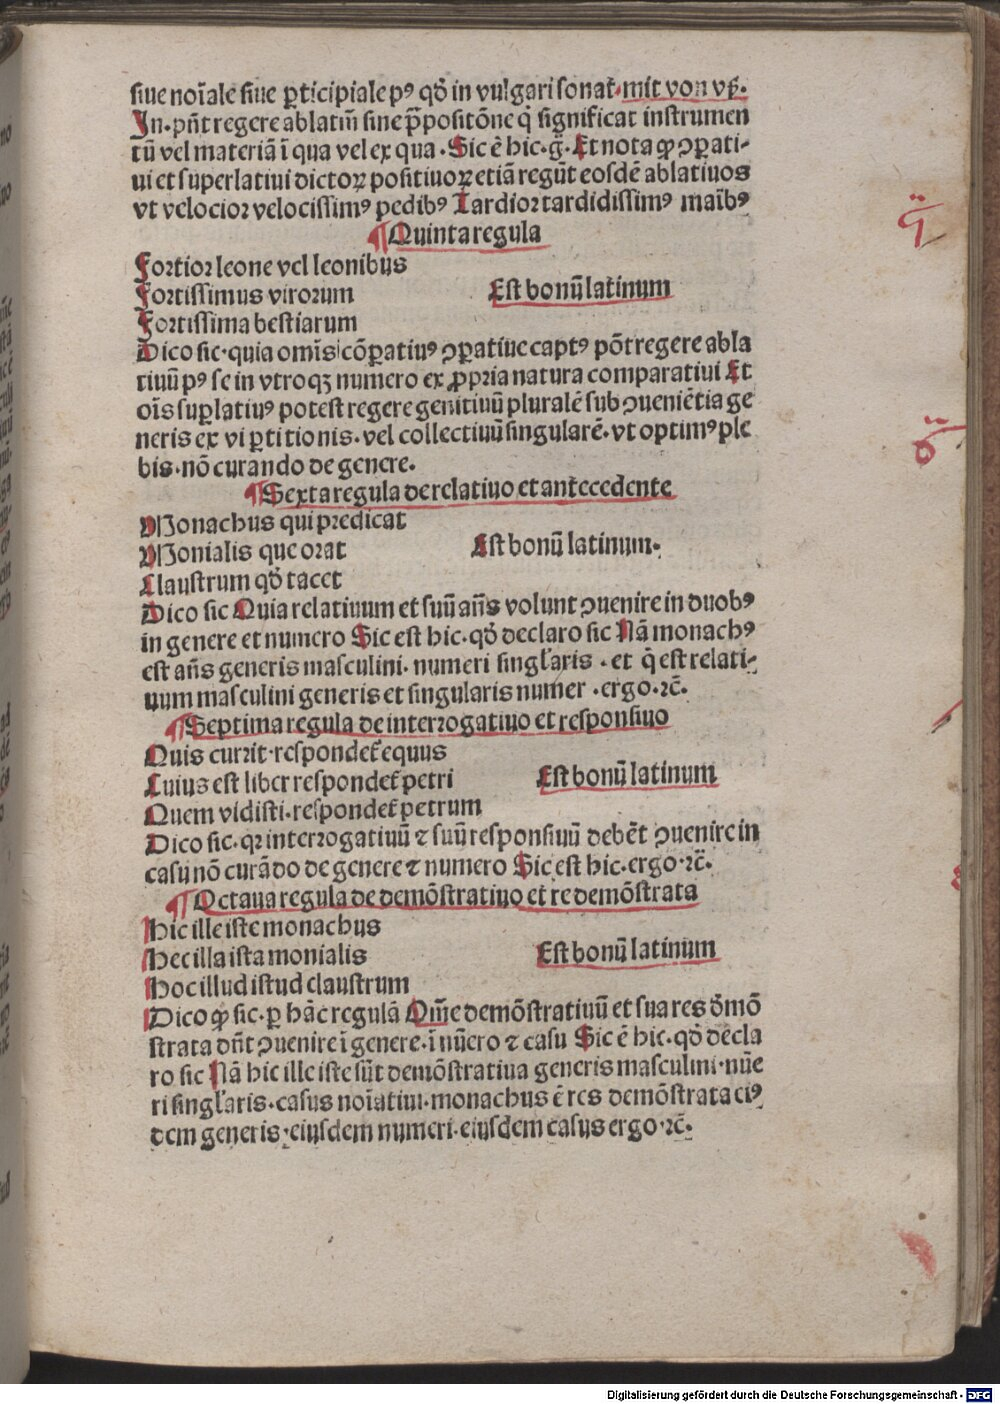 siue noīale siue ꝑticipiale pꝰ qḋ in vulgari sonat᷑ mit von vß.
In. pn̄t regere ablatiū sine p̄positōne q̇ significat instrumen
tū vel materiā ī qua vel ex qua. Sic ē hic. g̊. Et nota ꝙ ꝯꝑati-
ui et superlatiui dictoꝝ positiuoꝝ etiā regūt eosdē ablatiuos
vt velocior velocissimꝰ pedibꝰ Tardior tardidissimꝰ maībꝰ
¶ Quinta regula
Fortior leone vel leonibus
Fortissimus virorum Est bonū latinum
Fortissima bestiarum
Dico sic. quia omīs cōꝑatiuꝰ ꝯꝑatiue captꝰ pōt regere abla
tiuū pꝰ se in vtroqꝫ numero ex ꝓpria natura comparatiui Et
oīs suꝑlatiuꝰ potest regere genitiuū pluralē sub ꝯueniētia ge
neris ex vi ꝑtitionis. vel collectiuū singularē. vt optimꝰ ple
bis. nō curando de genere.
¶ Sexta regula de relatiuo et antecedente
Monachus qui predicat
Monialis que orat Est bonū latinum.
Claustrum qḋ tacet
Dico sic Quia relatiuum et suū an̄s volunt ꝯuenire in duobꝰ
in genere et numero Sic est hic. qḋ declaro sic Nā monachꝰ
est an̄s generis masculini. numeri singl̓aris. et q̇ est relati-
uum masculini generis et singularis numer. ergo. ꝛc̄.
¶ Septima regula de interrogatiuo et responsiuo
Quis currit. respondet᷑ equus
Cuius est liber respondet᷑ petri Est bonū latinum
Quem vidisti. respondet᷑ petrum
Dico sic. qꝛ interrogatiuū ⁊ suū responsiuū debēt ꝯuenire in
casu nō curādo de genere ⁊ numero Sic est hic. ergo. ꝛc̄.
¶ Octaua regula de demōstratiuo et re demōstrata
Hic ille iste monachus
Hec illa ista monialis Est bonū latinum
Hoc illud istud claustrum
Dico ꝙ sic. ꝑ hāc regulā Om̄e demōstratiuū et sua res d̓mō
strata dn̄t ꝯuenire ī genere. ī nūero ⁊ casu Sic ē hic. qḋ decla
ro sic Nā hic ille iste sūt demōstratiua generis masculini. nūe
ri singl̓aris. casus noīatiui. monachus ē res demōstrata eiꝰ
dem generis. eiusdem numeri. eiusdem casus ergo. ꝛc̄.
Digitalisierung gefördert durch die Deutsche Forschungsgemeinschaft - DFG